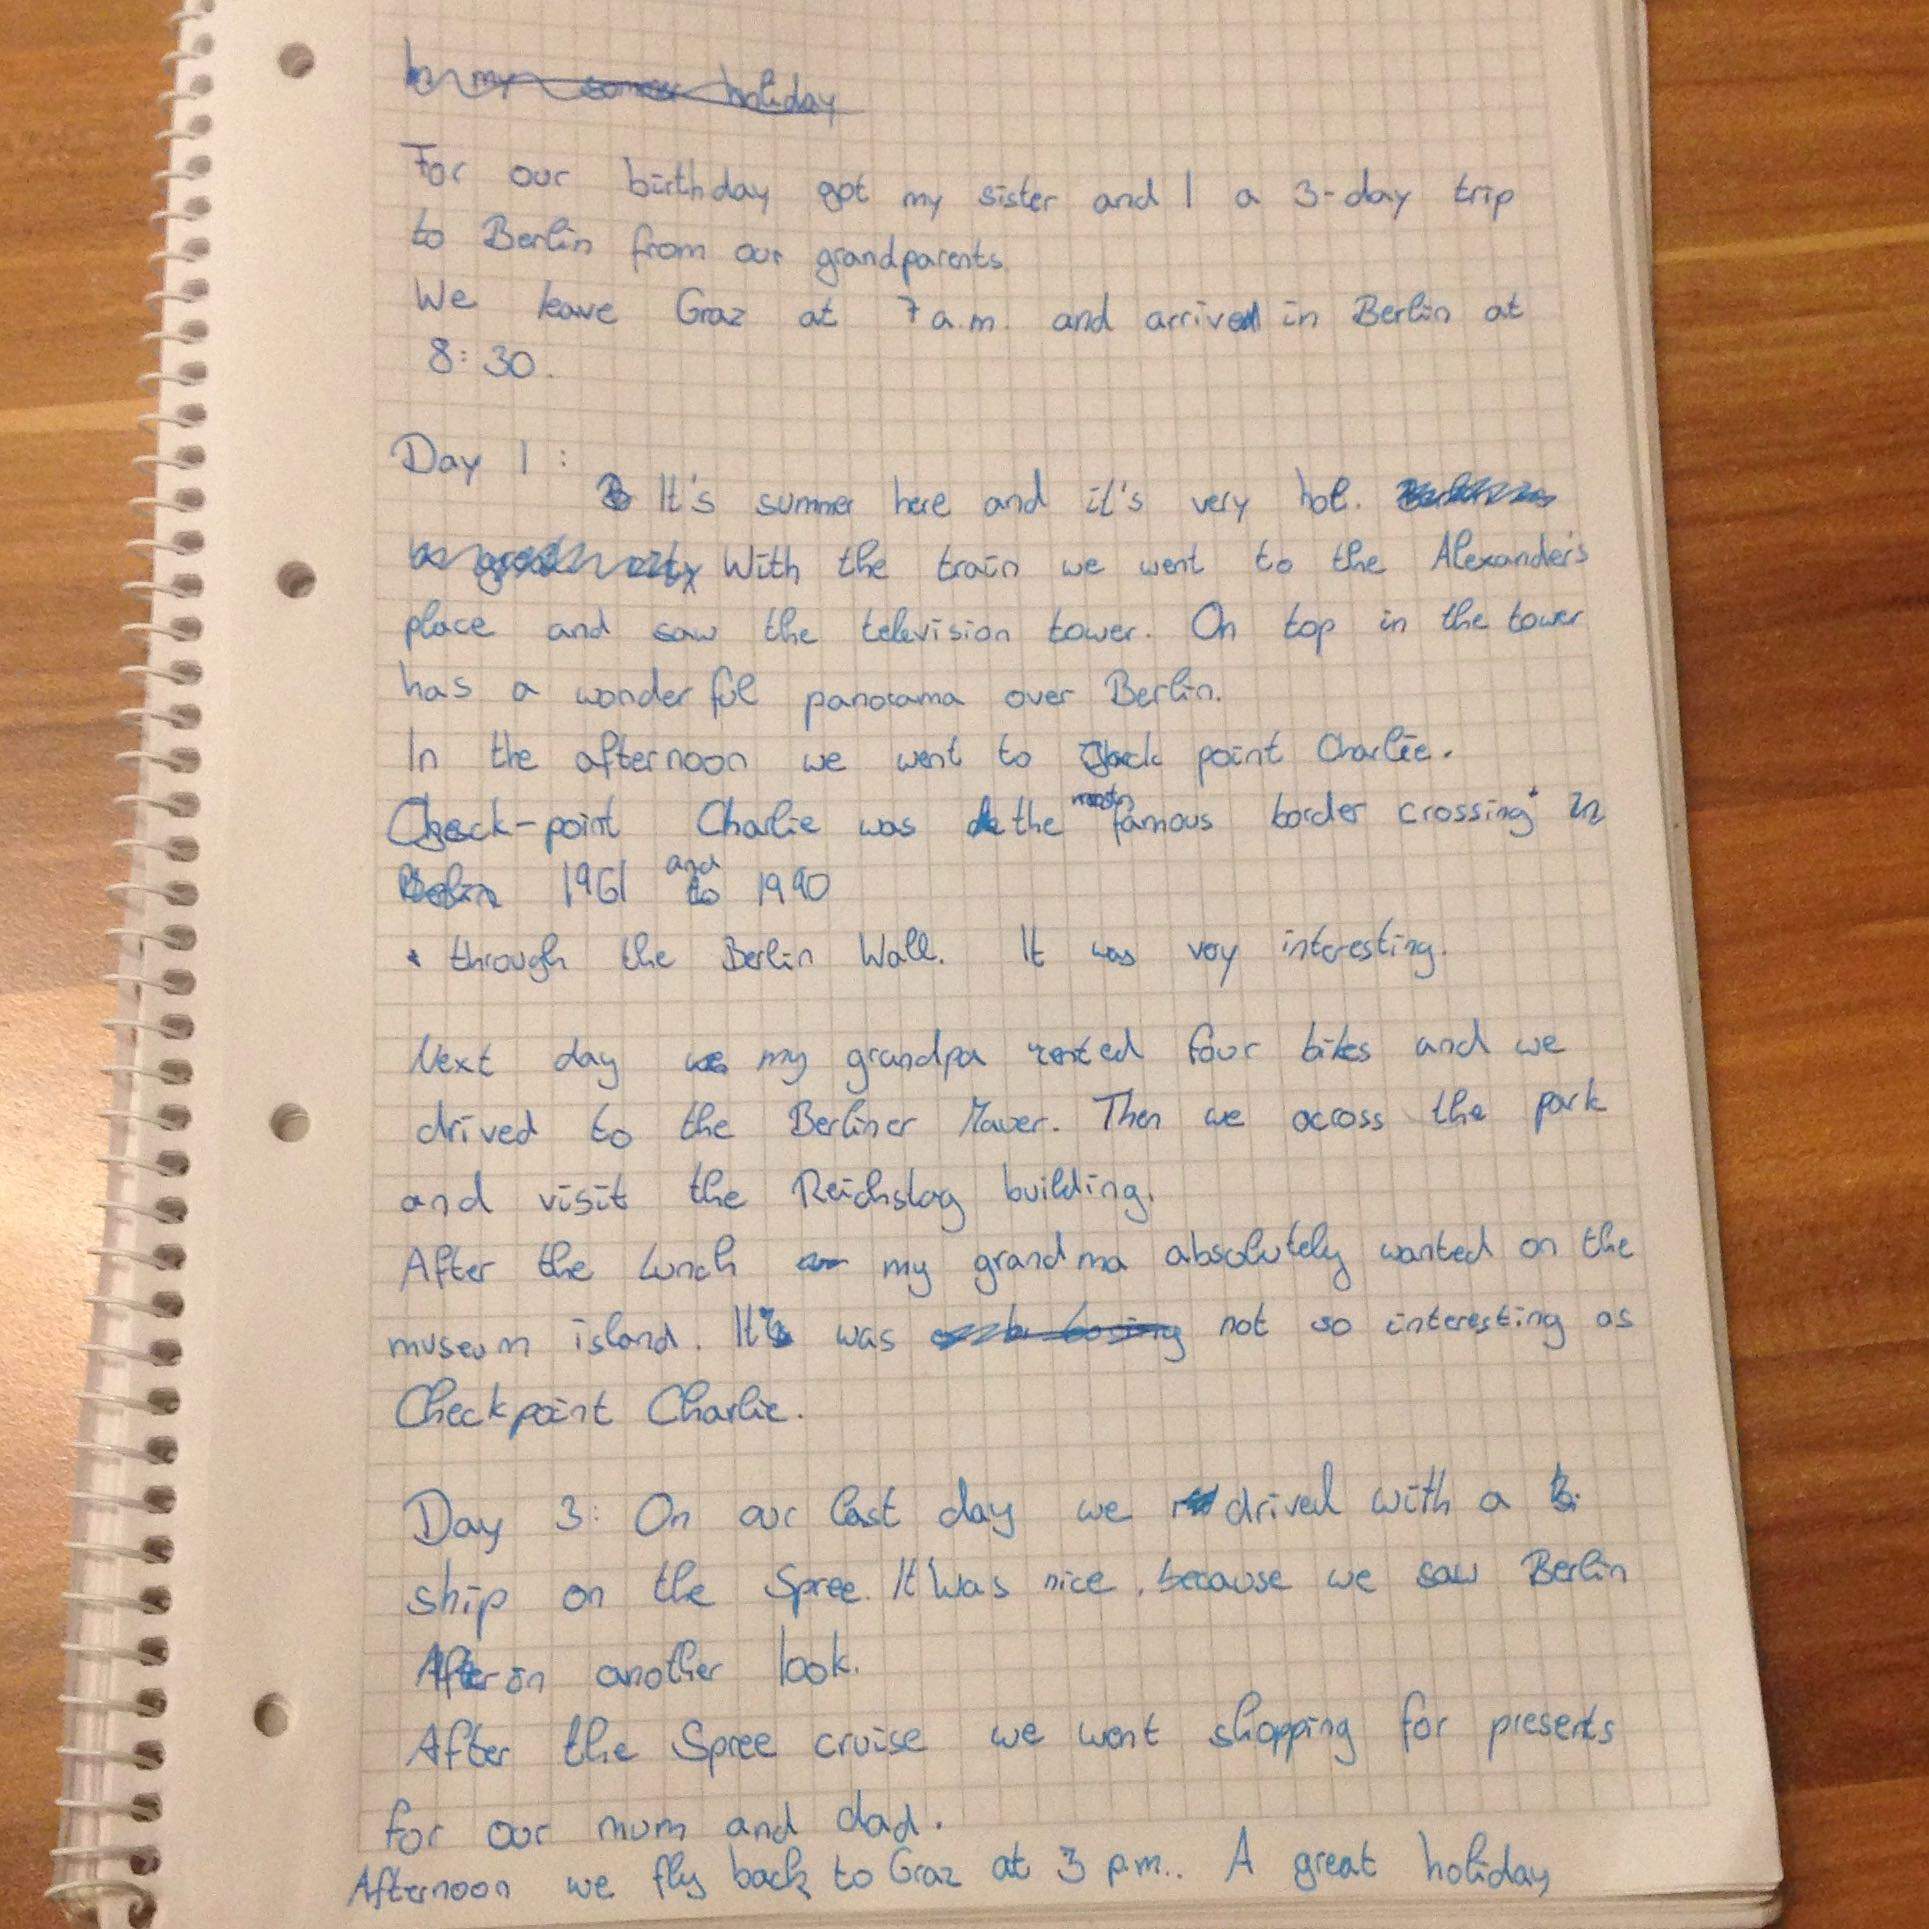 For our birthday got my sister and I a 3-day trip
to Berlin from our grandparents.
We leave Graz at 7 a.m. and arrived in Berlin at
8:30.
Day 1:
It's summer here and it's very hot.
With the train we went to the Alexander's
place and saw the television tower. On top in the tower
has a wonderful panorama over Berlin.
In the afternoon we went to point Charlie.
Check-point Charlie was the famous border crossing* in
Berlin 1961 and to 1990
* through the Berlin Wall. It was very interesting.
Next day my grandpa rented four bikes and we
drived to the Berliner Mauer. Then we across the park
and visit the Reichstag building.
After the lunch my grandma absolutely wanted on the
museum island. It was not so interesting as
Checkpoint Charlie.
Day 3: On our last day we drived with a
ship on the Spree. It was nice, because we saw Berlin
in another look.
After the Spree cruise we went shopping for presents
for our mum and dad.
Afternoon we fly back to Graz at 3 p.m.. A great holiday